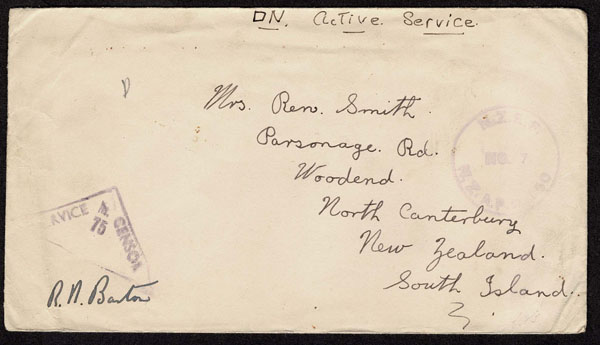 ON. Active. Service.
Mrs. Rev. Smith.
Parsonage. Rd.
Woodend.
North Canterbury
New Zealand.
South Island.
N.Z.E.F.
NO. 7
N.Z.A.P.
No
75
CENSOR
R. N. Barton